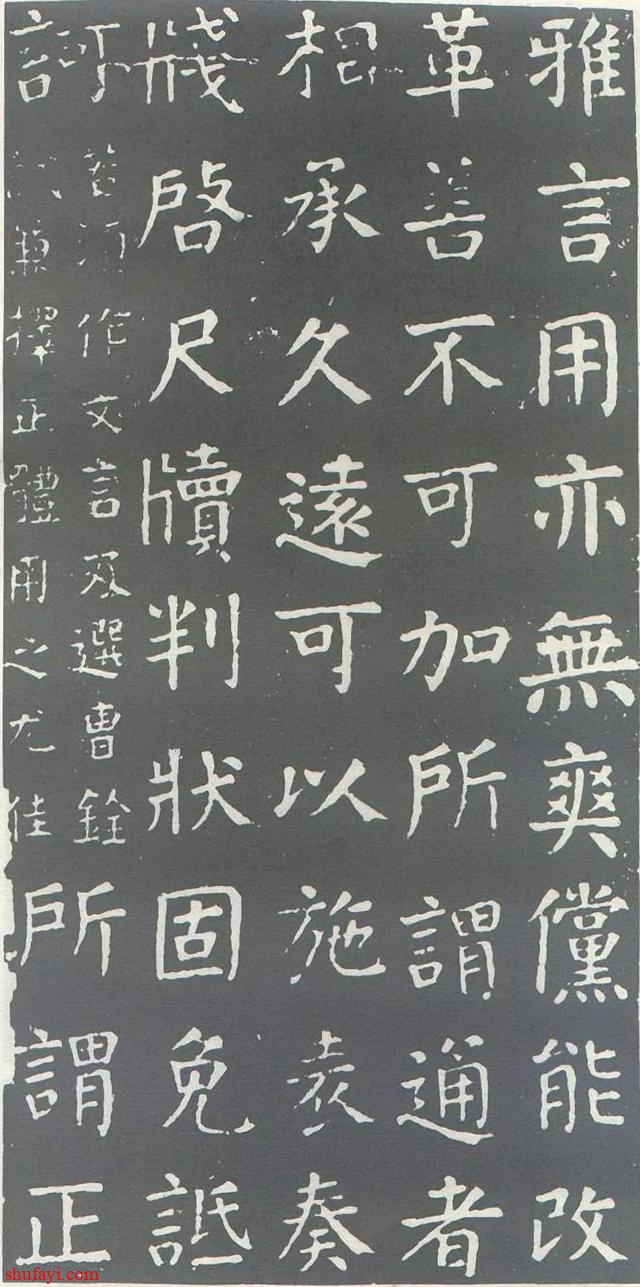 雅言用亦無爽儻能改
革善不可加所謂通者
相承久遠可以施表奏
牋啓尺牘判狀固免詆
訶
若須作文言及選曹銓
試兼擇正體用之尤佳
所謂正
shufayi.com